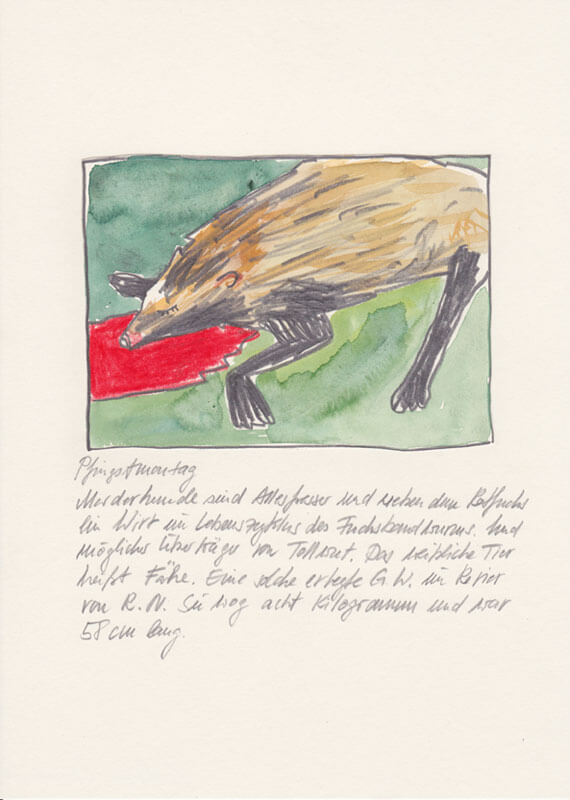 Pfingstmontag
Marderhunde sind Allesfresser und neben dem Rotfuchs
ein Wirt im Lebenszyklus des Fuchsbandwurms. Und
mögliche Überträger von Tollwut. Das weibliche Tier
heißt Fähe. Eine solche erlegte G. W. im Revier
von R. N. Sie wog acht Kilogramm und war
58 cm lang.